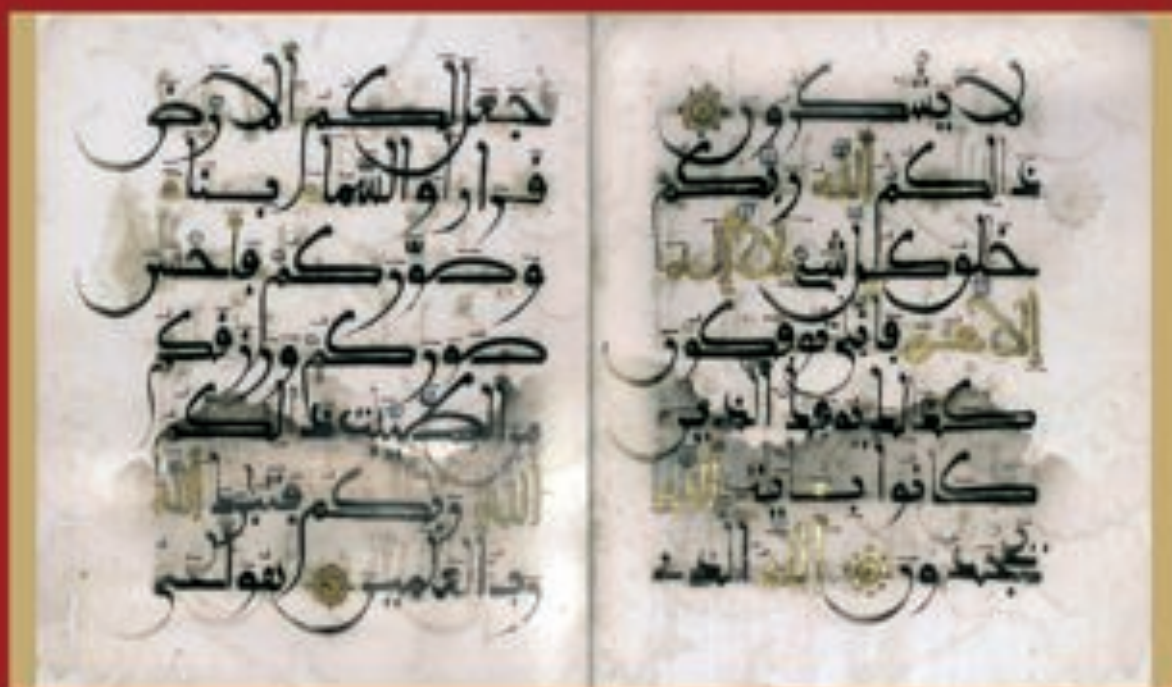 لا يشكرون
ذالكم الله ربكم
خلق كل شيء لا إله
إلا هو فأنى توفكون
كذلك يوفك الذين
كانوا بـايت الله
يجحدون الله الذي
جعل لكم الارض
قرارا والسماء بناء
وصوركم فاحسن
صوركم ورزقكم
من الطيبت ذلكم
الله ربكم فتبرك الله
رب العالمين هو الحي